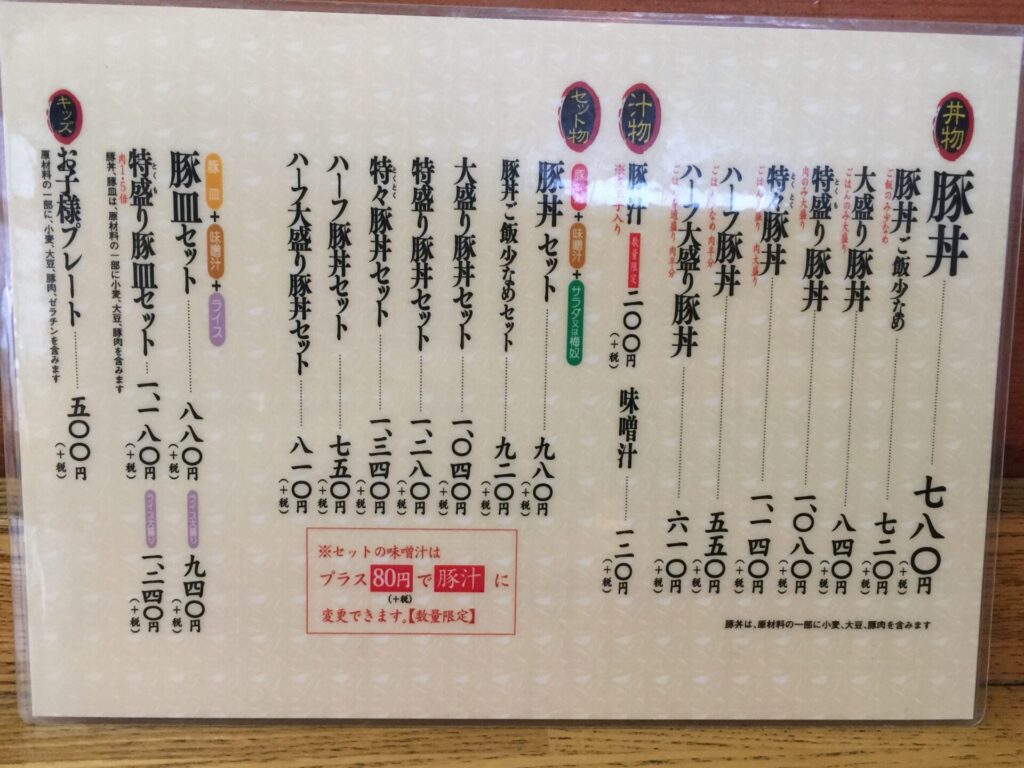 丼物
豚丼 七八〇円(+税)
豚丼ご飯少なめ 七二〇円(+税)
ご飯のみ少なめ
大盛り豚丼 八四〇円(+税)
ごはんのみ大盛り
特盛り豚丼 一、〇八〇円(+税)
とくもり
肉のみ大盛り
特々豚丼 一、一四〇円(+税)
とくとく
ごはん大盛り 肉大盛り
ハーフ豚丼 五五〇円(+税)
ごはん少なめ 肉半分
ハーフ大盛り豚丼 六一〇円(+税)
ごはん普通盛り 肉半分
豚丼は、原材料の一部に小麦、大豆、豚肉を含みます
汁物
豚汁 数量限定 二〇〇円(+税)
味噌汁 一二〇円(+税)
セット物
豚丼+味噌汁+サラダ又は梅奴
豚丼セット 九八〇円(+税)
豚丼ご飯少なめセット 九二〇円(+税)
大盛り豚丼セット 一、〇四〇円(+税)
特盛り豚丼セット 一、二八〇円(+税)
特々豚丼セット 一、三四〇円(+税)
とくとく
ハーフ豚丼セット 七五〇円(+税)
ハーフ大盛り豚丼セット 八一〇円(+税)
※セットの味噌汁は
プラス80円で豚汁に
(+税)
変更できます。【数量限定】
豚皿+味噌汁+ライス
豚皿セット 八八〇円(+税) ライス大盛り 九四〇円(+税)
特盛り豚皿セット 一、一八〇円(+税) ライス大盛り 一、二四〇円(+税)
とくもり
肉1.5倍
豚丼、豚皿は、原材料の一部に小麦、大豆、豚肉を含みます
キッズ
お子様プレート 五〇〇円(+税)
原材料の一部に、小麦、大豆、豚肉、ゼラチンを含みます